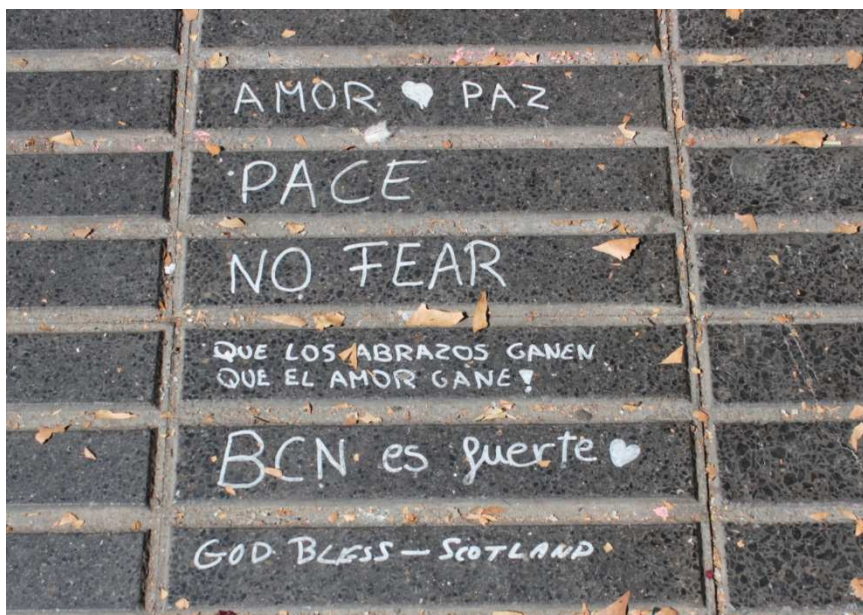 AMOR ♥ PAZ
PACE
NO FEAR
QUE LOS ABRAZOS GANEN
QUE EL AMOR GANE!
BCN es fuerte ♥
GOD BLESS – SCOTLAND